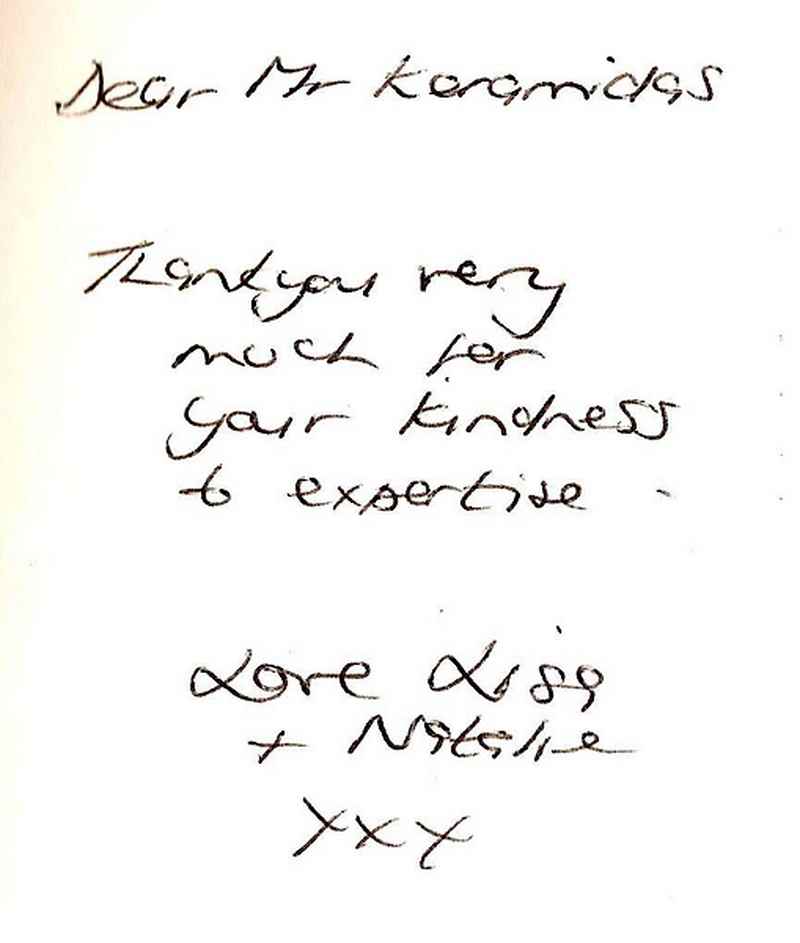 Dear Mr Karamidas
Thankyou very
much for
your kindness
+ expertise.
Love Lisa
+ Natalie
xxx